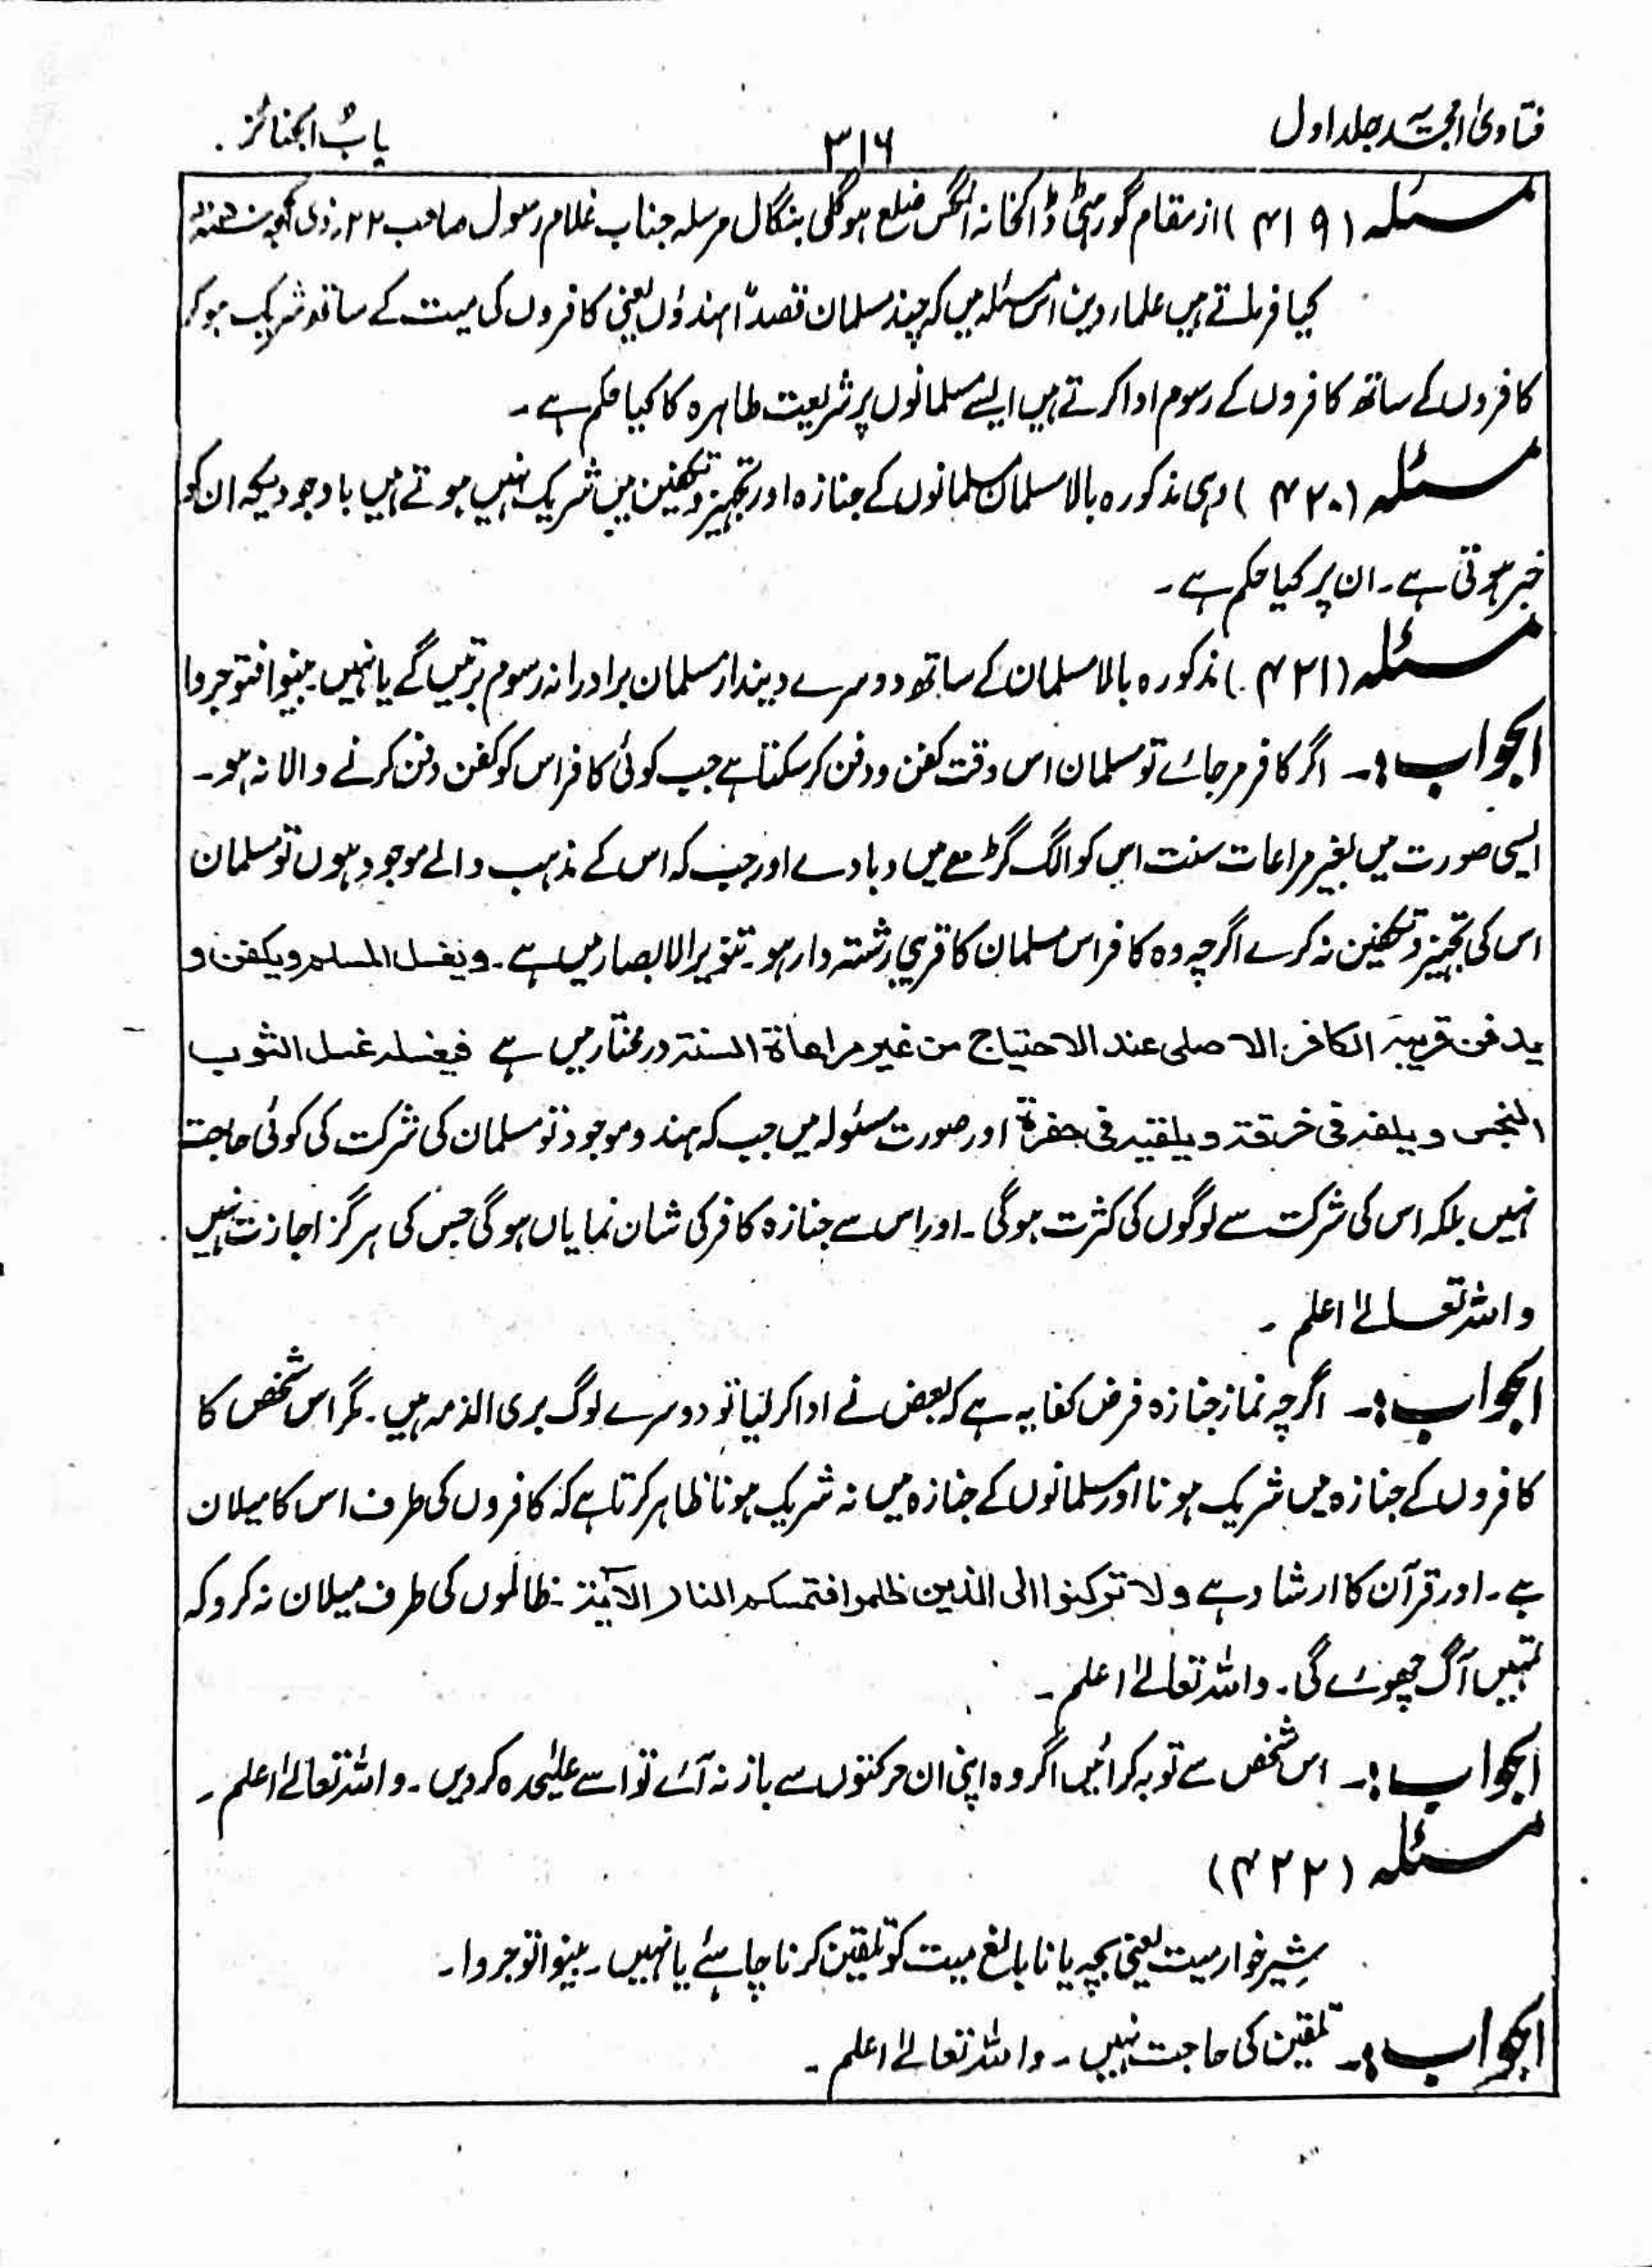 فتاویٰ امجدیہ جلد اول
۳۱۶
باب الجنائز
مسئلہ (۴۱۹) از مقام گورہٹی ڈاکخانہ انگس ضلع ہوگلی بنگال مرسلہ جناب غلام رسول صاحب ۲۲ ذی الحجہ
کیا فرماتے ہیں علماء دین اس مسئلہ میں کہ چند مسلمان قصداً ہندؤں یعنی کافروں کی میت کے ساتھ شریک ہوکر
کافروں کے ساتھ کافروں کے رسوم ادا کرتے ہیں ایسے مسلمانوں پر شریعت طاہرہ کا کیا حکم ہے۔
مسئلہ (۴۲۰) وہی مذکورہ بالا مسلمان مسلمانوں کے جنازہ اور تجہیز و تکفین میں شریک نہیں ہوتے ہیں باوجودیکہ ان کو
خبر ہوتی ہے۔ ان پر کیا حکم ہے۔
مسئلہ (۴۲۱) مذکورہ بالا مسلمان کے ساتھ دوسرے دیندار مسلمان برادرانہ رسوم برتیں گے یا نہیں۔ بینوا فتوجروا
الجواب:۔ اگر کافر مرجائے تو مسلمان اس وقت کفن و دفن کرسکتا ہے جب کوئی کافر اس کو کفن دفن کرنے والا نہ ہو۔
ایسی صورت میں بغیر مراعات سنت اس کو الگ گڑھے میں دبادے اور جب کہ اس کے مذہب والے موجود ہوں تو مسلمان
اس کی تجہیز و تکفین نہ کرے اگرچہ وہ کافر اس مسلمان کا قریبی رشتہ دار ہو۔ تنویر الابصار میں ہے۔ ویغسل المسلم ویکفن و
یدفن قریبہ الکافر الاصلی عند الاحتیاج من غیر مراعاۃ السنۃ درمختار میں ہے فیغسلہ غسل الثوب
النجس ویلفہ فی خرقۃ ویلقیہ فی حفرۃ اور صورت مسئولہ میں جب کہ ہندو موجود تو مسلمان کی شرکت کی کوئی حاجت
نہیں بلکہ اس کی شرکت سے لوگوں کی کثرت ہوگی۔ اور اس سے جنازہ کافر کی شان نمایاں ہوگی جس کی ہرگز اجازت نہیں
واللہ تعالےٰ اعلم۔
الجواب:۔ اگرچہ نماز جنازہ فرض کفایہ ہے کہ بعض نے ادا کرلیا تو دوسرے لوگ بری الذمہ ہیں۔ مگر اس شخص کا
کافروں کے جنازہ میں شریک ہونا اور مسلمانوں کے جنازہ میں نہ شریک ہونا ظاہر کرتا ہے کہ کافروں کی طرف اس کا میلان
ہے۔ اور قرآن کا ارشاد ہے ولا ترکنوا الی الذین ظلموا فتمسکم النار الآیۃ۔ ظالموں کی طرف میلان نہ کرو کہ
تمہیں آگ چھوئے گی۔ واللہ تعالےٰ اعلم۔
الجواب:۔ اس شخص سے توبہ کرائیں اگر وہ اپنی ان حرکتوں سے باز نہ آئے تو اسے علیٰحدہ کردیں۔ واللہ تعالےٰ اعلم۔
مسئلہ (۴۲۲)
شیر خوار میت یعنی بچہ یا نابالغ میت کو تلقین کرنا چاہئے یا نہیں۔ بینوا توجروا۔
الجواب:۔ تلقین کی حاجت نہیں۔ واللہ تعالےٰ اعلم۔